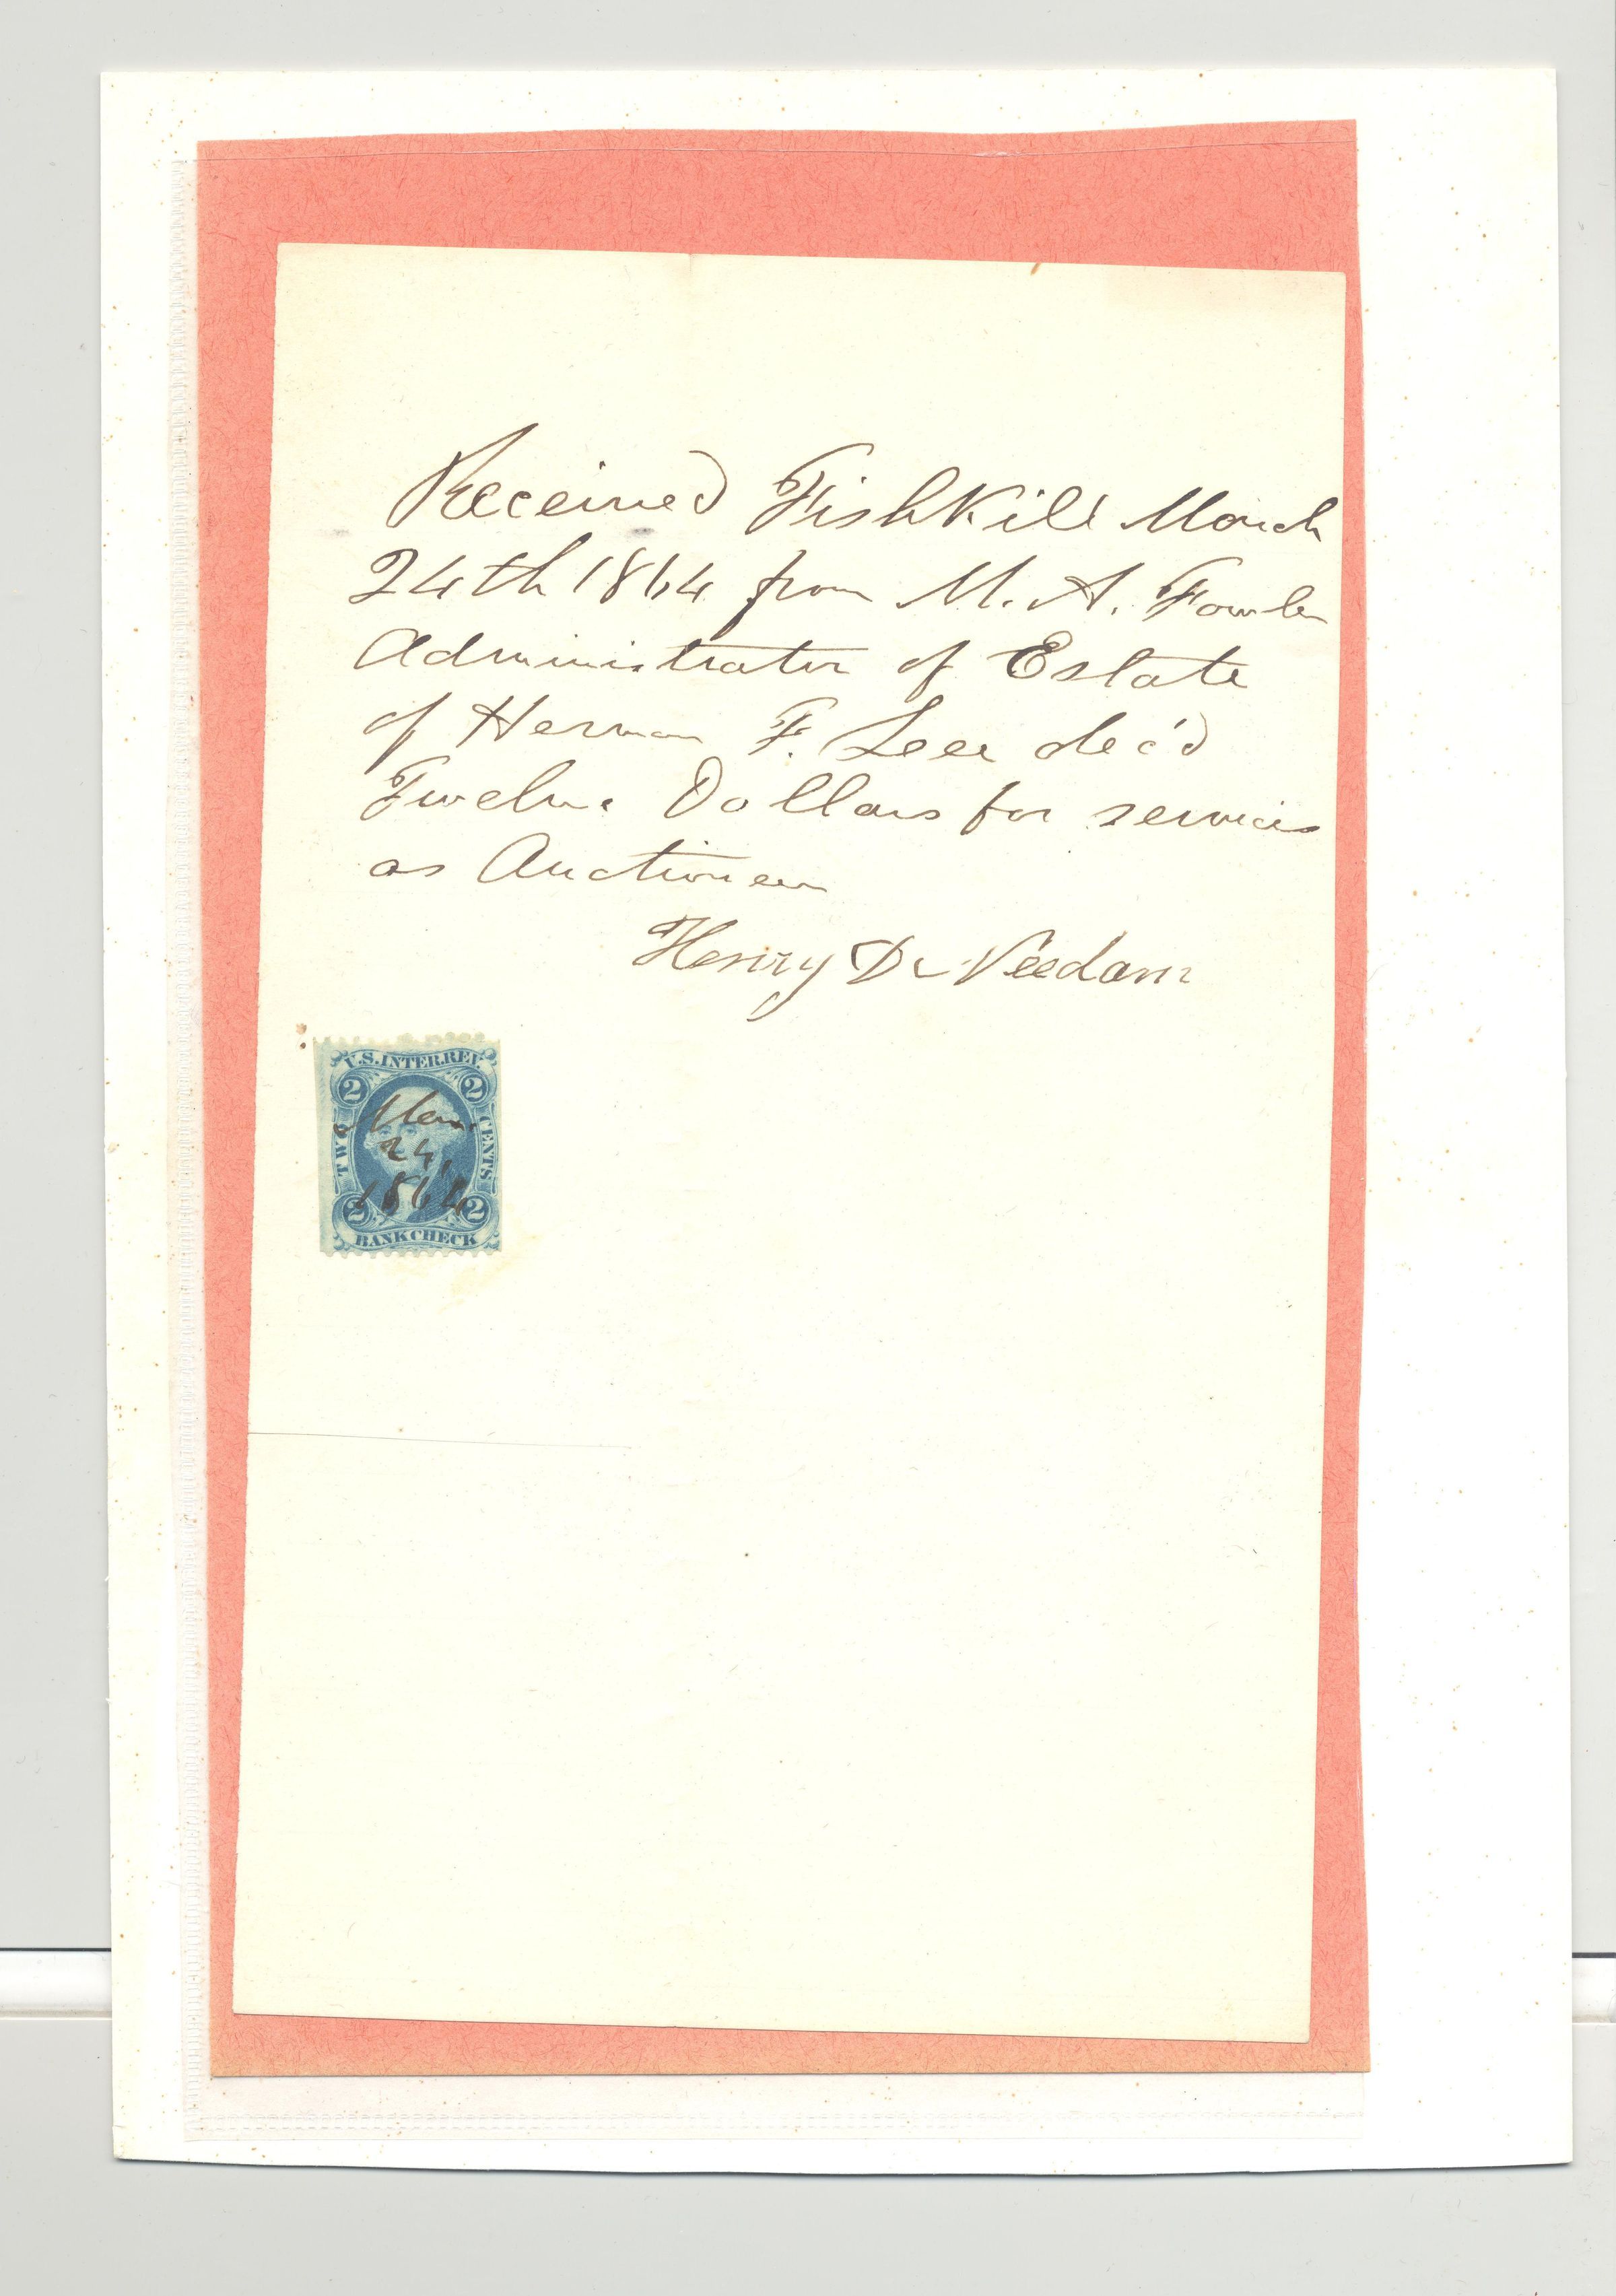 Received Fishkill March
24th 1864 from M. A. Fowler
Administrator of Estate
of Herman F. Leer dec'd
Twelve Dollars for services
as Auctioneer
Henry D. Needam
U.S. INTER. REV.
2 2
TWO CENTS
Mar.
24,
1864
2 2
BANK CHECK